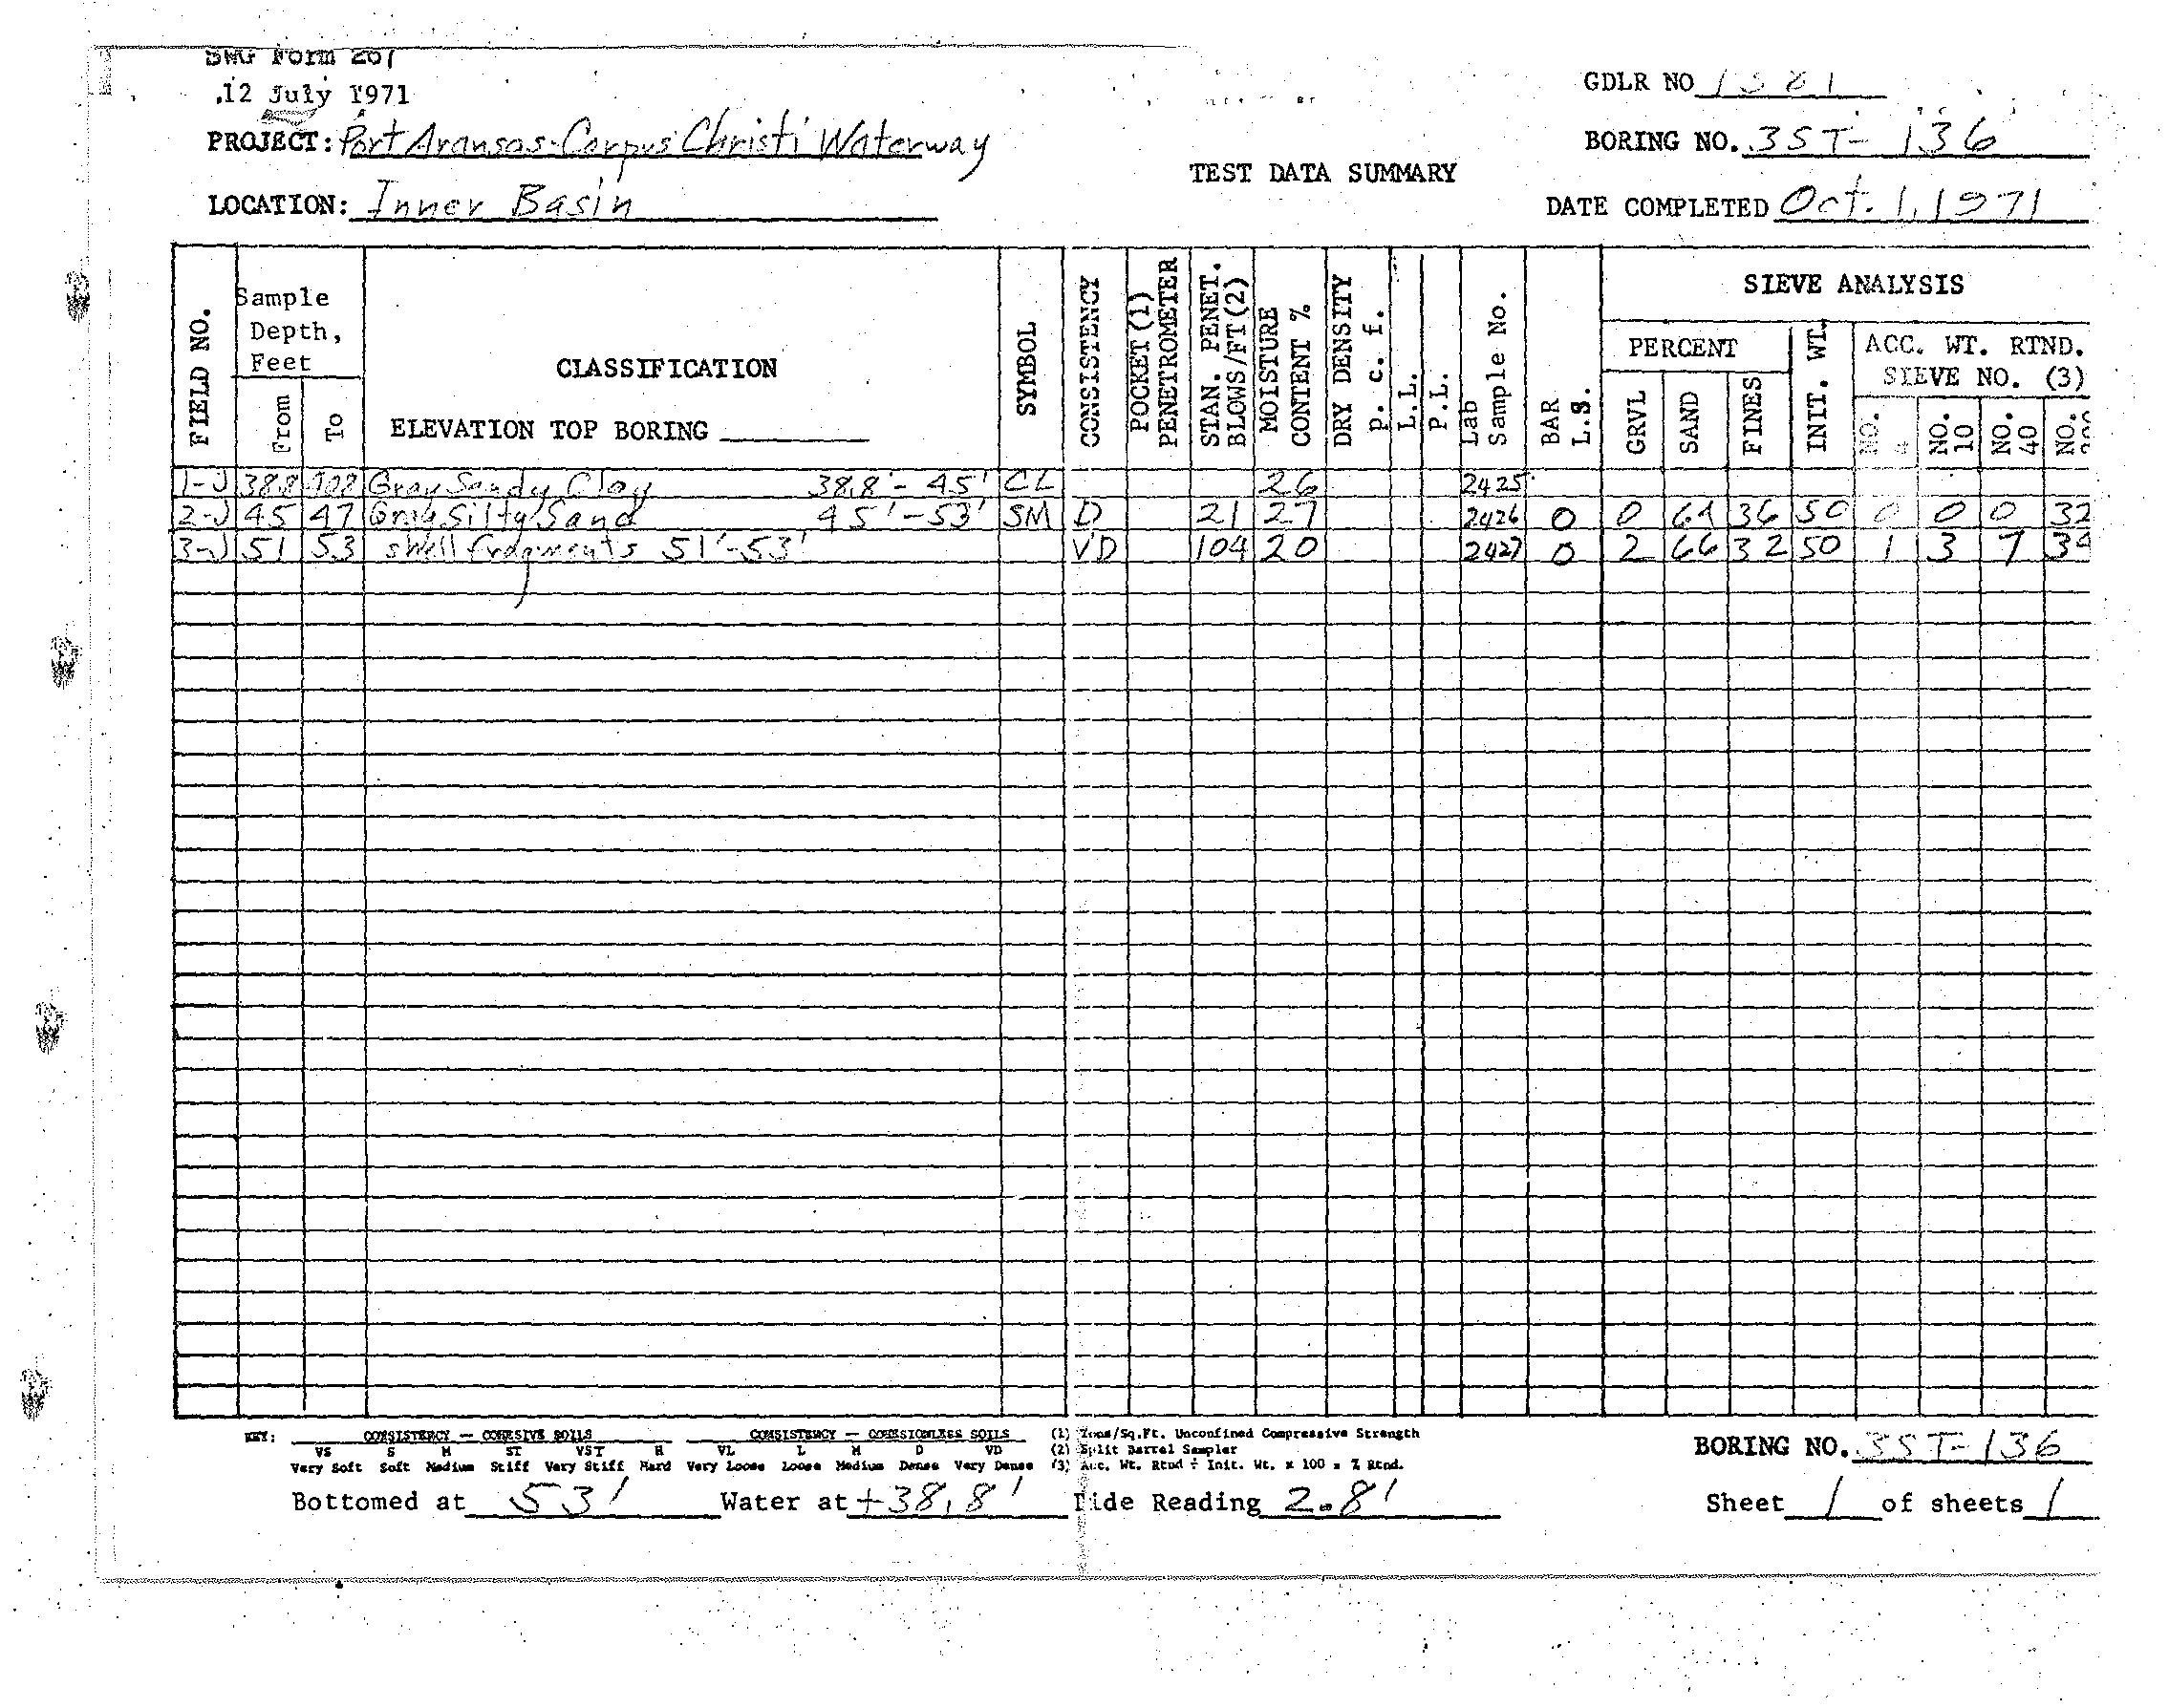 SWG Form 207
12 July 1971
GDLR NO
PROJECT: Port Aransas-Corpus Christi Waterway
BORING NO. 3ST-136
TEST DATA SUMMARY
LOCATION: Inner Basin
DATE COMPLETED Oct. 1, 1971
FIELD NO.
Sample
Depth,
Feet
From
To
CLASSIFICATION
ELEVATION TOP BORING
SYMBOL
CONSISTENCY
POCKET (1)
PENETROMETER
STAN. PENET.
BLOWS/FT(2)
MOISTURE
CONTENT %
DRY DENSITY
p. c. f.
L.L.
P.L.
Lab
Sample No.
BAR
L.S.
SIEVE ANALYSIS
PERCENT
GRVL
SAND
FINES
INIT. WT.
ACC. WT. RTND.
SIEVE NO. (3)
NO.
NO.
10
NO.
40
NO.
1-J 38.8 Gray Sandy Clay 38.8'-45' CL 26 2425
2-J 45 47 Gray Silty Sand 45'-53' SM D 21 27 2426 0 0 64 36 50 0 0 0 32
3-J 51 53 shell fragments 51'-53' VD 104 20 2427 0 2 66 32 50 1 3 7 34
KEY: CONSISTENCY — COHESIVE SOILS CONSISTENCY — COHESIONLESS SOILS
VS S M ST VST H VL L M D VD
Very Soft Soft Medium Stiff Very Stiff Hard Very Loose Loose Medium Dense Very Dense
(1) Tons/Sq.Ft. Unconfined Compressive Strength
(2) Split Barrel Sampler
(3) Acc. Wt. Rtnd ÷ Init. Wt. x 100 = % Rtnd.
BORING NO. 3ST-136
Bottomed at 53' Water at +38.8' Tide Reading 2.8'
Sheet 1 of sheets 1